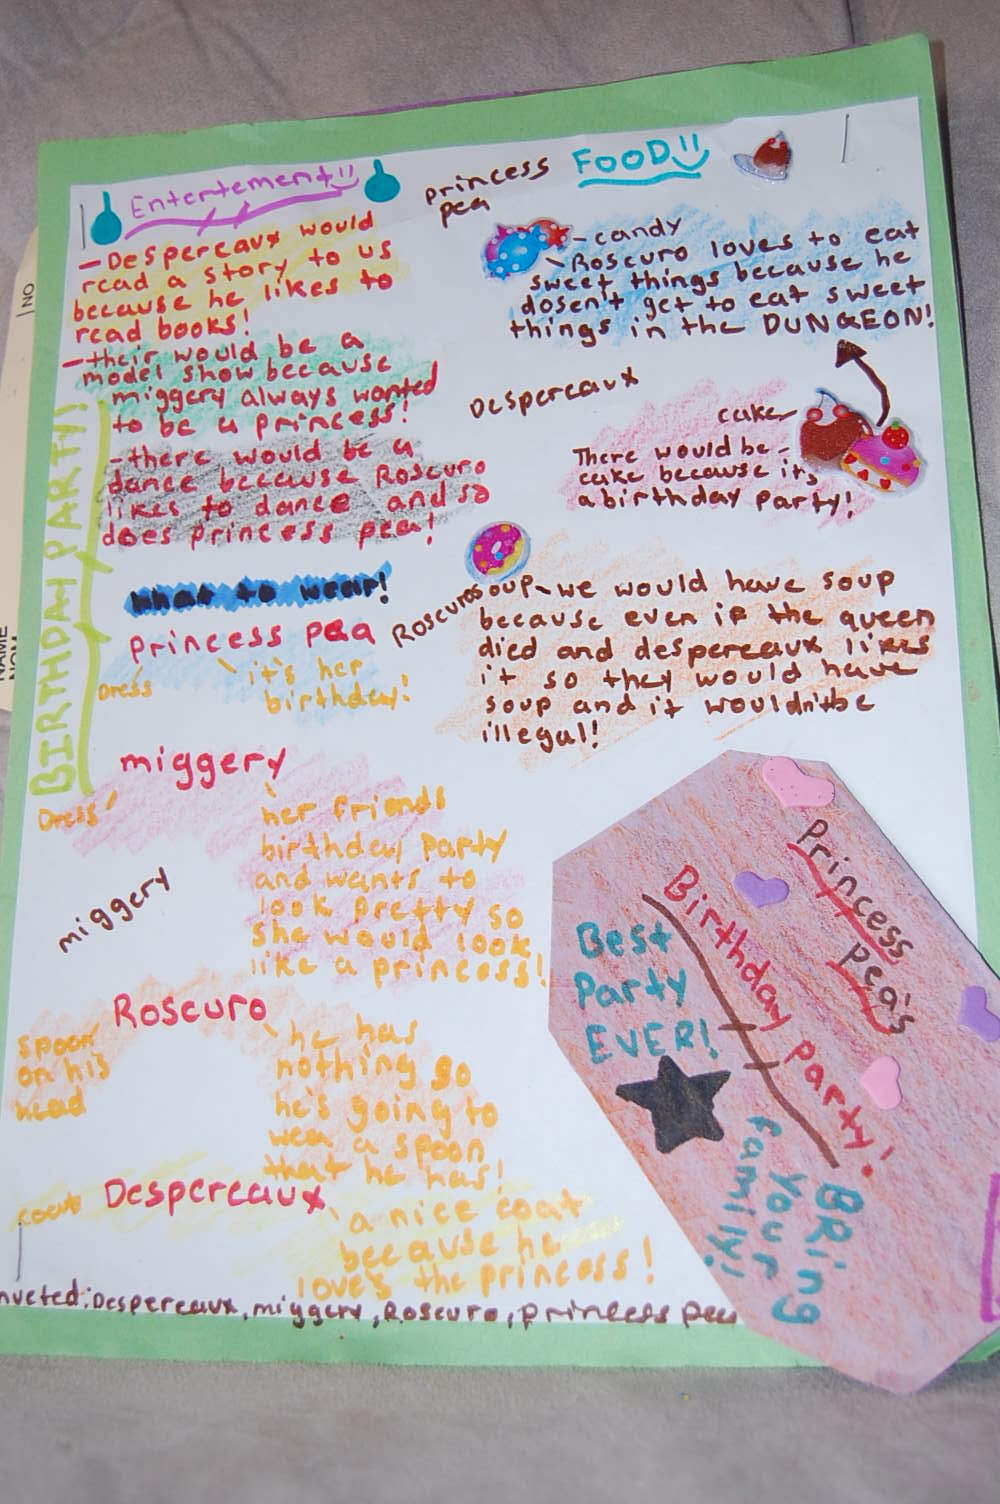 Entertement
-Despereaux would
read a story to us
because he likes to
read books!
-their would be a
model show because
miggery always wanted
to be a princess!
-there would be a
dance because Roscuro
likes to dance and so
does princess pea!
BIRTHDAY PARTY!
what to wear!
Princess pea
Dress
it's her
birthday!
miggery
Dress
her friends
birthday party
and wants to
look pretty so
she would look
like a princess!
miggery
Roscuro
spoon
on his
head
he has
nothing so
he's going to
wear a spoon
that he has!
Despereaux
coat
a nice coat
because he
loves the princess!
nveted: Despereaux, miggery, Roscuro, princess pea
FOOD
princess
pea
-candy
Roscuro loves to eat
sweet things because he
dosen't get to eat sweet
things in the DUNGEON!
Despereaux
cake
There would be
cake because its
a birthday party!
Roscuro
soup-we would have soup
because even if the queen
died and despereaux likes
it so they would have
soup and it wouldn't be
illegal!
Princess
pea's
Birthday party!
Best
Party
EVER!
BRing
your
family!
NO
NAME
NOM